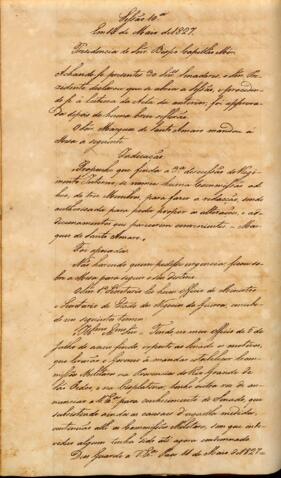 Sessão 10ª
Em 14 de Maio de 1827.
Presidencia do Snr. Bispo Capellão Mór.
Achando-se presentes 30 Snrs. Senadores, o Snr. Pre-
sidente declarou que se abria a Sessão, e proceden-
do-se á leitura da Acta da anterior, foi approva-
da depois de huma breve reflexão.
O Snr. Marquez de Santo Amaro mandou á
Mesa a seguinte
Indicação
Proponho que finda a 3ª discussão do Regi-
mento Interno, se nomeie huma Commissão ad
hoc, de tres Membros, para fazer a redacção, sendo
authorisada para poder propôr as alterações, e ad-
dicionamentos que parecerem convenientes - Mar-
quez de Santo Amaro.
Foi apoiada.
Não havendo quem pedisse urgencia, ficou so-
bre a Mesa para seguir os
O Snr. 1º Secretario leo hum Officio do Ministro
e Secretario de Estado dos Negocios da Guerra, conce-
bido nos seguintes termos
Illmo. e Exmo. Snr. - Tendo em meu Officio de 6 de
Julho do anno findo, exposto ao Senado os motivos,
que levárão o Governo á mandar estabelecer Com-
missões Militares na Provincia do Rio Grande de
São Pedro, e na Cisplatina, tenho outra vez de an-
nunciar a V. Exª. para conhecimento do Senado, que
subsistindo ainda as causas d'aquella medida,
continúão alli as Commissões Militares, sem que in-
algum tenha tido até agora
Deos Guarde a V. Exª. Paço 11 de Maio de 1827 -